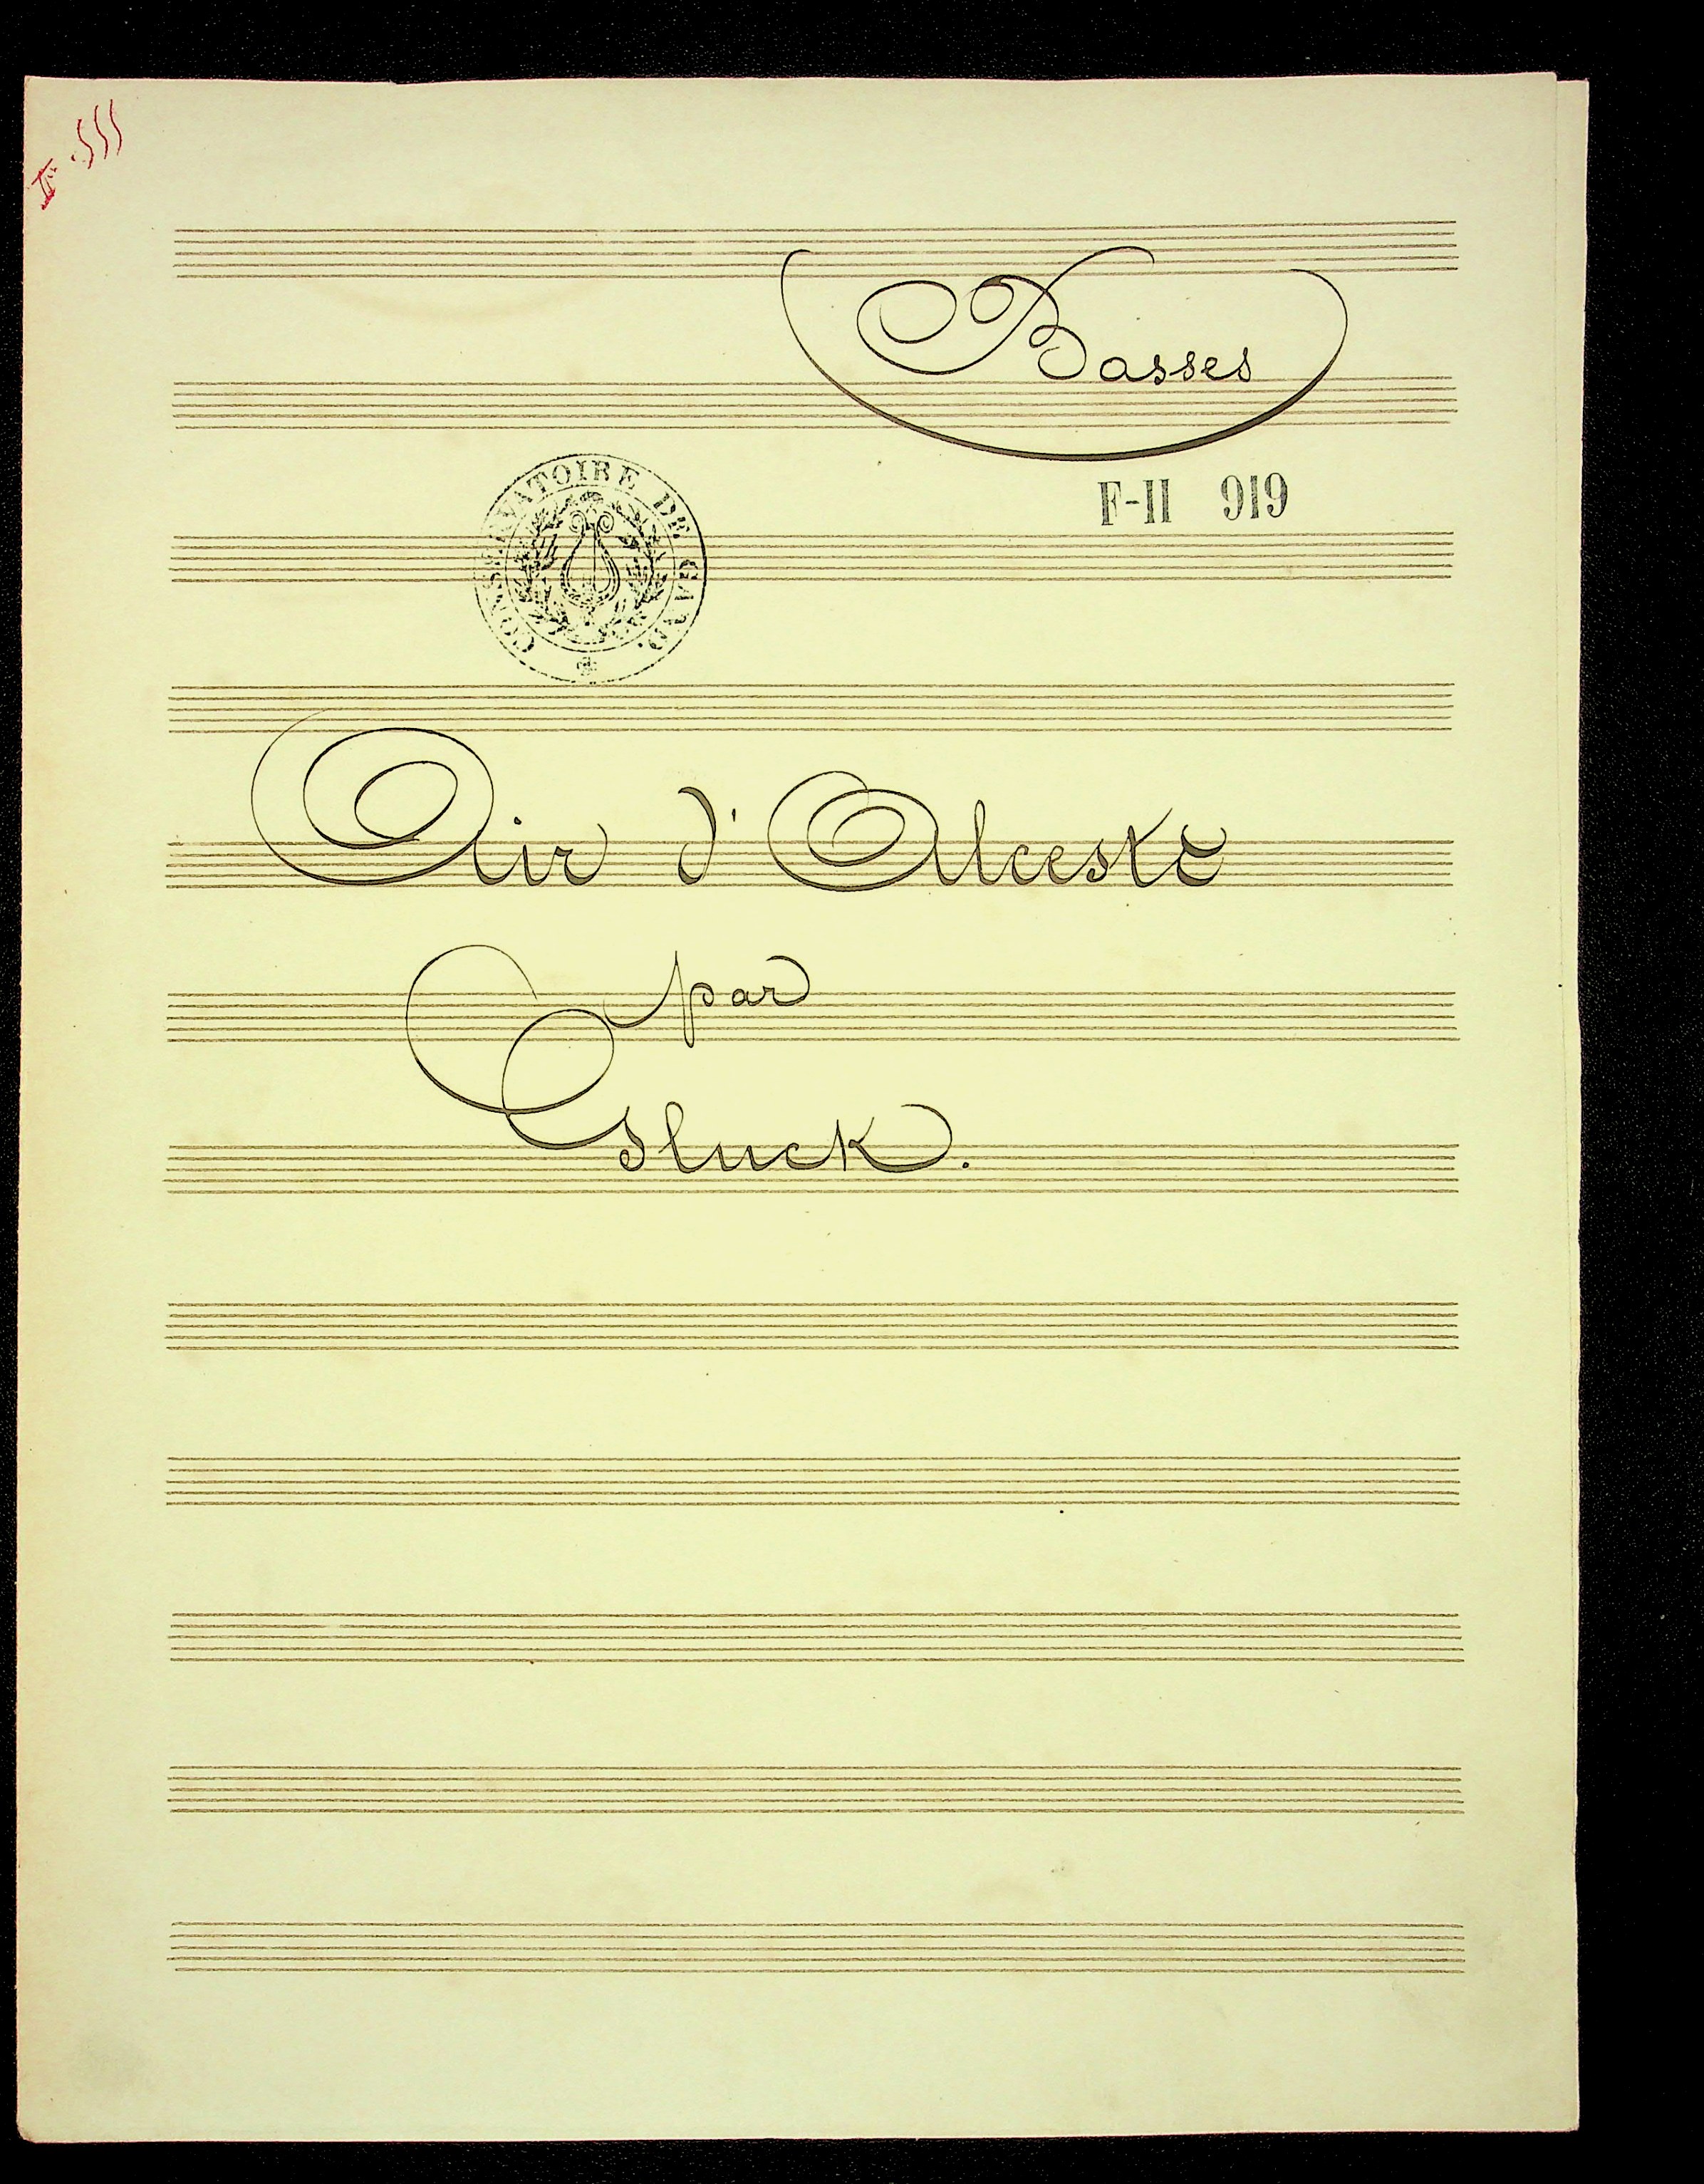 Basses
F-II 919
CONSERVATOIRE DE GAND.
Air d'Alceste
par
Gluck.